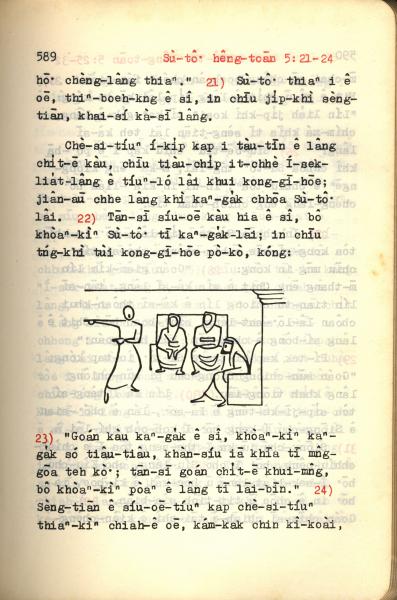 589 Sù-tô͘ hêng-toān 5:21-24
hō͘ chèng-lâng thiaⁿ." 21) Sù-tô͘ thiaⁿ i ê
oē, thiⁿ-boeh-kng ê sî, in chiū ji̍p-khì sèng-
tiān, khai-sí kà-sī lâng.
Chè-si-tíuⁿ í-ki̍p kap i tâu-tīn ê lâng
chi̍t-ē kàu, chiū tiàu-chi̍p it-chhè Í-sek-
lia̍t-lâng ê tíuⁿ-ló lâi khui kong-gī-hōe;
jiân-āu chhe lâng khì kaⁿ-ga̍k chhōa Sù-tô͘
lâi. 22) Tān-sī síu-oē kàu hia ê sî, bô
khòaⁿ-kìⁿ Sù-tô͘ tī kaⁿ-ga̍k-lāi; in chiū
tńg-khì tùi kong-gī-hōe pò-kò, kóng:
23) "Goán kàu kaⁿ-ga̍k ê sî, khòaⁿ-kìⁿ kaⁿ-
ga̍k só tiâu-tiâu, khàn-síu iā khiā tī mn̂g-
góa teh kò͘; tān-sī goán chi̍t-ē khui-mn̂g,
bô khòaⁿ-kìⁿ pòaⁿ ê lâng tī lāi-bīn." 24)
Sèng-tiān ê síu-oē-tíuⁿ kap chè-si-tíuⁿ
thiaⁿ-kìⁿ chiah-ê oē, kám-kak chin kî-koài,